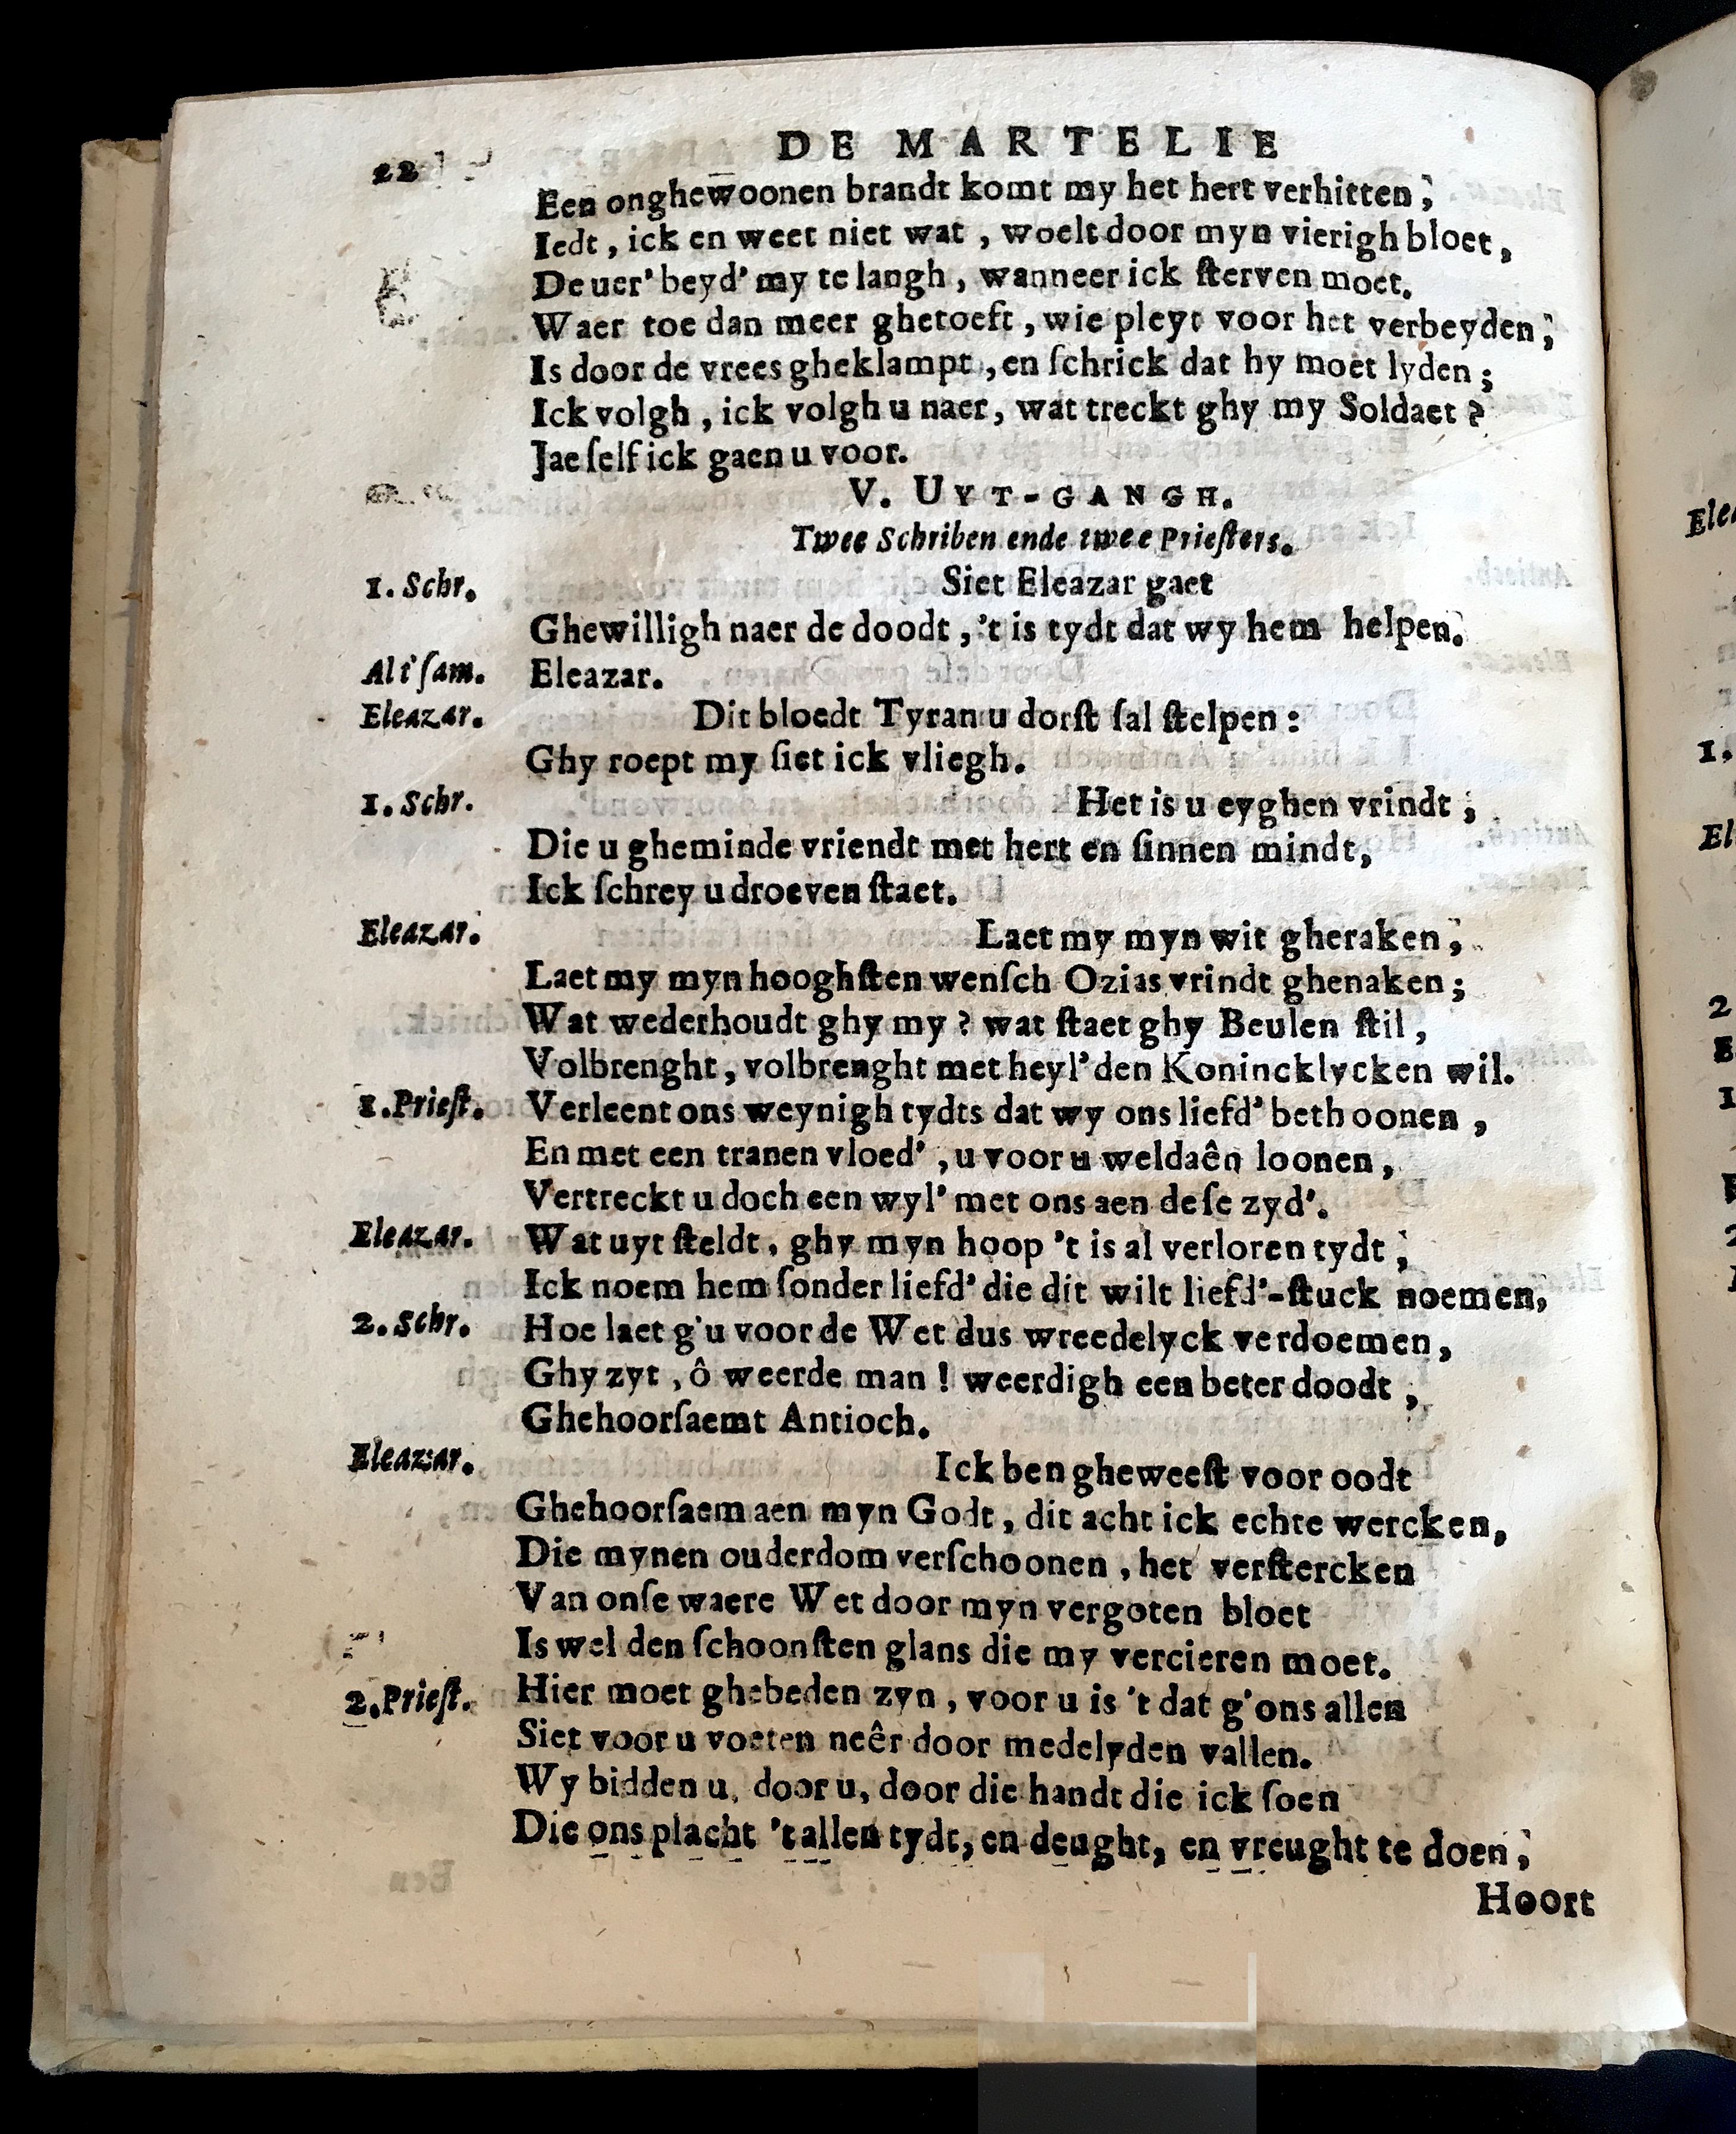 22 DE MARTELIE
Een onghewoonen brandt komt my het hert verhitten;
Iedt, ick en weet niet wat, woelt door myn vierigh bloet,
De uer' beyd' my te langh, wanneer ick ſterven moet.
Waer toe dan meer ghetoeft, wie pleyt voor het verbeyden;
Is door de vrees gheklampt, en ſchrick dat hy moet lyden;
Ick volgh, ick volgh u naer, wat treckt ghy my Soldaet?
Jae ſelf ick gaen u voor.
V. UYT-GANGH.
Twee Schriben ende twee Prieſters.
1. Schr. Siet Eleazar gaet
Ghewilligh naer de doodt, 't is tydt dat wy hem helpen.
Al t' ſam. Eleazar.
Eleazar. Dit bloedt Tyran u dorſt ſal ſtelpen:
Ghy roept my ſiet ick vliegh.
1. Schr. Het is u eyghen vrindt;
Die u gheminde vriendt met hert en ſinnen mindt,
Ick ſchrey u droeven ſtaet.
Eleazar. Laet my myn wit gheraken;
Laet my myn hooghſten wenſch Ozias vrindt ghenaken;
Wat wederhoudt ghy my? wat ſtaet ghy Beulen ſtil,
Volbrenght, volbrenght met heyl' den Konincklycken wil.
1. Prieſt. Verleent ons weynigh tydts dat wy ons liefd' bethoonen,
En met een tranen vloed', u voor u weldaên loonen,
Vertreckt u doch een wyl' met ons aen deſe zyd'.
Eleazar. Wat uyt ſteldt, ghy myn hoop 't is al verloren tydt;
Ick noem hem ſonder liefd' die dit wilt liefd'-ſtuck noemen,
2. Schr. Hoe laet g'u voor de Wet dus wreedelyck verdoemen,
Ghy zyt, ô weerde man! weerdigh een beter doodt,
Ghehoorſaemt Antioch.
Eleazar. Ick ben gheweeſt voor oodt
Ghehoorſaem aen myn Godt, dit acht ick echte wercken,
Die mynen ouderdom verſchoonen, het verſtercken
Van onſe waere Wet door myn vergoten bloet
Is wel den ſchoonſten glans die my vercieren moet.
2. Prieſt. Hier moet ghebeden zyn, voor u is 't dat g'ons allen
Siet voor u voeten neêr door medelyden vallen.
Wy bidden u, door u, door die handt die ick ſoen
Die ons placht 't allen tydt, en deught, en vreught te doen;
Hoort